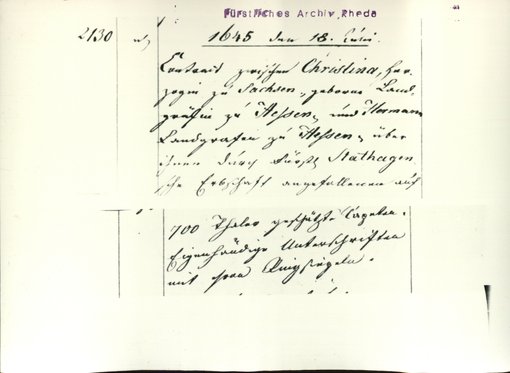 Fürstliches Archiv, Rheda
2130
1645 den 18. Juni.
Contract zwischen Christina, Her-
zogin zu Sachsen, geborne Land-
gräfin zu Hessen, und Hermann
Landgrafen zu Hessen, über
ihnen durch Fürstl.
sche Erbschaft angefallenen auf
700 Thaler geschätzte Tapeten.
Eigenhändige Unterschriften
mit Ringsiegeln.